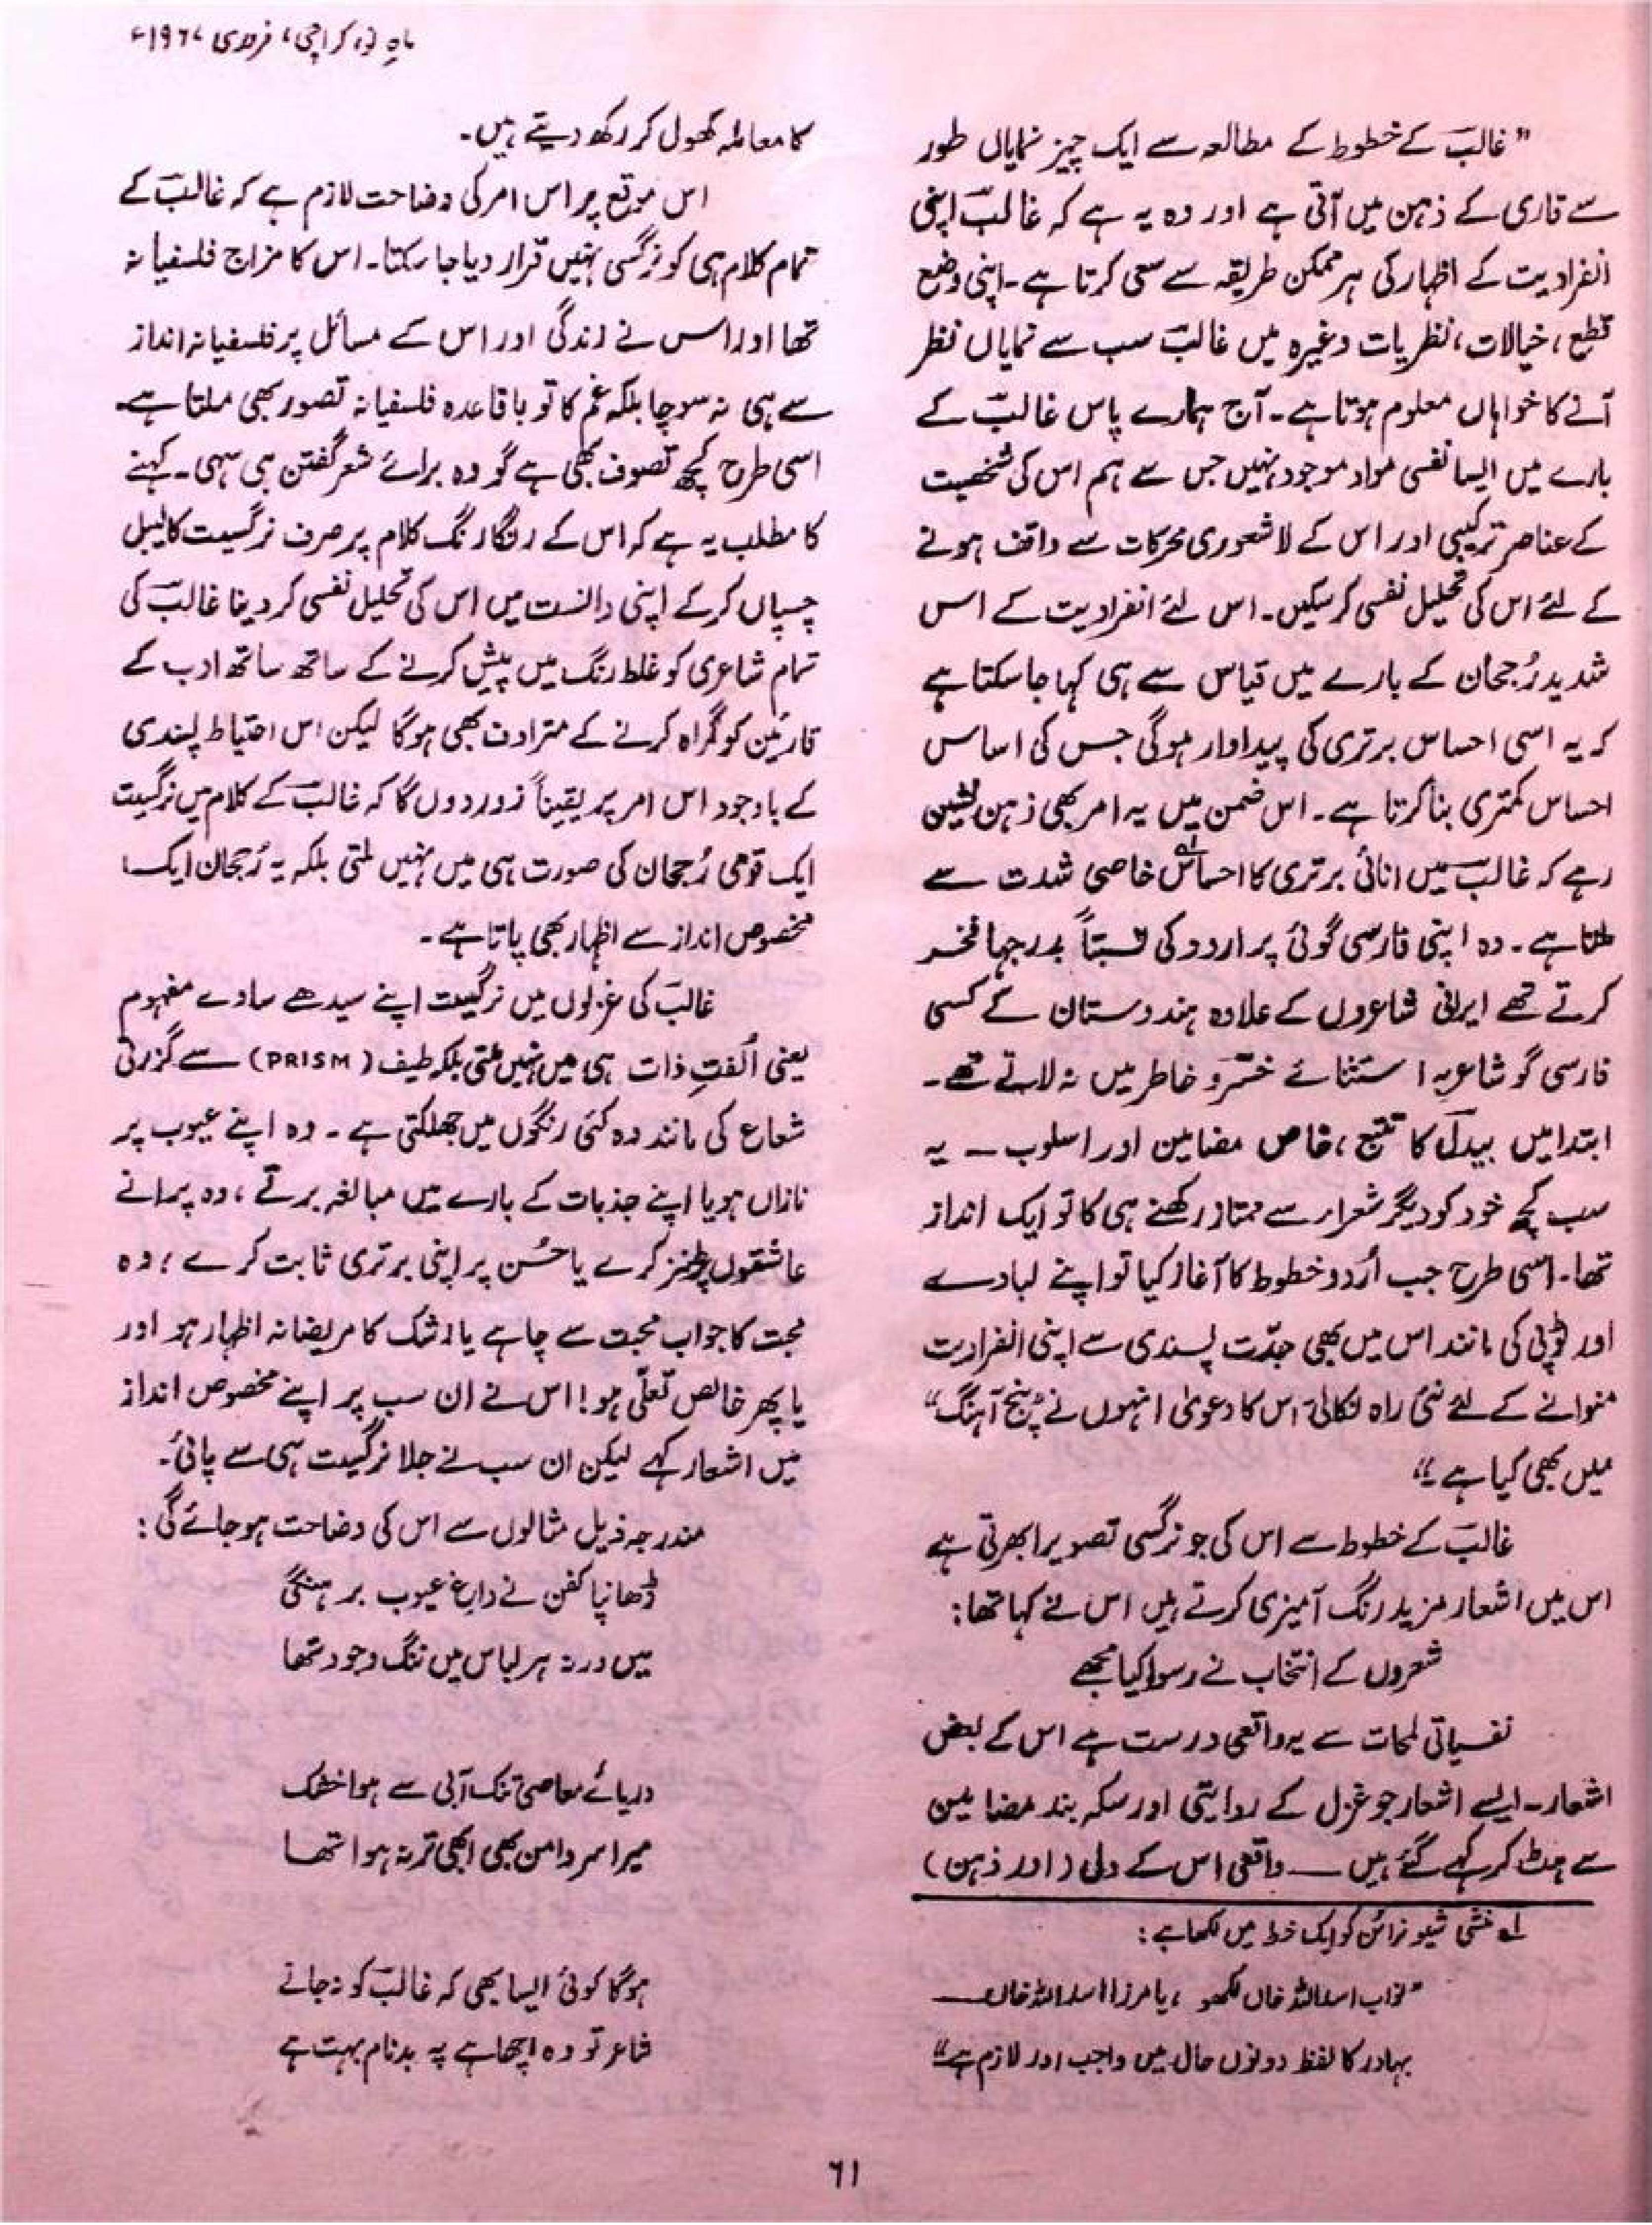 ماہِ نو، کراچی، فروری ۱۹۶۷ء
”غالبؔ کے خطوط کے مطالعہ سے ایک چیز نمایاں طور
سے قاری کے ذہن میں آتی ہے اور وہ یہ ہے کہ غالبؔ اپنی
انفرادیت کے اظہار کی ہر ممکن طریقہ سے سعی کرتا ہے۔ اپنی وضع
قطع، خیالات، نظریات وغیرہ میں غالبؔ سب سے نمایاں نظر
آنے کا خواہاں معلوم ہوتا ہے۔ آج ہمارے پاس غالبؔ کے
بارے میں ایسا نفسی مواد موجود نہیں جس سے ہم اس کی شخصیت
کے عناصر ترکیبی اور اس کے لاشعوری محرکات سے واقف ہونے
کے لئے اس کی تحلیل نفسی کرسکیں۔ اس لئے انفرادیت کے اس
شدید رُجحان کے بارے میں قیاس سے ہی کہا جاسکتا ہے
کہ یہ اسی احساس برتری کی پیداوار ہوگی جس کی اساس
احساس کمتری بنا کرتا ہے۔ اس ضمن میں یہ امر بھی ذہن نشین
رہے کہ غالبؔ میں انائی برتری کا احساس لے خاصی شدت سے
ملتا ہے۔ وہ اپنی فارسی گوئی پر اردو کی نسبتاً بدرجہا فخر
کرتے تھے ایرانی شاعروں کے علاوہ ہندوستان کے کسی
فارسی گو شاعر بہ استثنائے خسرؔو خاطر میں نہ لاتے تھے۔
ابتدا میں بیدلؔ کا تتبع، خاص مضامین اور اسلوب — یہ
سب کچھ خود کو دیگر شعراء سے ممتاز رکھنے ہی کا تو ایک انداز
تھا۔ اسی طرح جب اُردو خطوط کا آغاز کیا تو اپنے لبادے
اور ٹوپی کی مانند اس میں بھی جدّت پسندی سے اپنی انفرادیت
منوانے کے لئے نئی راہ نکالی، اس کا دعویٰ انہوں نے ”پنج آہنگ“
میں بھی کیا ہے۔“
غالبؔ کے خطوط سے اس کی جو نرگسی تصویر ابھرتی ہے
اس میں اشعار مزید رنگ آمیزی کرتے ہیں اس نے کہا تھا:
شعروں کے انتخاب نے رسوا کیا مجھے
نفسیاتی لحاظ سے یہ واقعی درست ہے اس کے بعض
اشعار۔ ایسے اشعار جو غزل کے روایتی اور سکہ بند مضامین
سے ہٹ کر کہے گئے ہیں — واقعی اس کے دلی (اور ذہن)
لے منشی شیو نرائن کو ایک خط میں لکھا ہے:
”نواب اسداللہ خاں لکھو، یا مرزا اسداللہ خاں—
بہادر کا لفظ دونوں حال میں واجب اور لازم ہے“
کا معاملہ کھول کر رکھ دیتے ہیں۔
اس موقع پر اس امر کی وضاحت لازم ہے کہ غالبؔ کے
تمام کلام ہی کو نرگسی نہیں قرار دیا جا سکتا۔ اس کا مزاج فلسفیانہ
تھا اور اس نے زندگی اور اس کے مسائل پر فلسفیانہ انداز
سے ہی نہ سوچا بلکہ غم کا تو باقاعدہ فلسفیانہ تصور بھی ملتا ہے۔
اسی طرح کچھ تصوف بھی ہے گو وہ برائے شعر گفتن ہی سہی۔ کہنے
کا مطلب یہ ہے کہ اس کے رنگا رنگ کلام پر صرف نرگسیت کا لیبل
چسپاں کرکے اپنی دانست میں اس کی تحلیل نفسی کر دینا غالبؔ کی
تمام شاعری کو غلط رنگ میں پیش کرنے کے ساتھ ساتھ ادب کے
قارئین کو گمراہ کرنے کے مترادف بھی ہوگا لیکن اس احتیاط پسندی
کے باوجود اس امر پر یقیناً زور دوں گا کہ غالبؔ کے کلام میں نرگسیت
ایک قومی رُجحان کی صورت ہی میں نہیں ملتی بلکہ یہ رُجحان ایک
مخصوص انداز سے اظہار بھی پاتا ہے۔
غالبؔ کی غزلوں میں نرگسیت اپنے سیدھے سادے مفہوم
یعنی اُلفتِ ذات ہی میں نہیں ملتی بلکہ طیف (PRISM) سے گزرتی
شعاع کی مانند وہ کئی رنگوں میں جھلکتی ہے۔ وہ اپنے عیوب پر
نازاں ہو یا اپنے جذبات کے بارے میں مبالغہ برتے، وہ پرانے
عاشقوں پر طنز کرے یا حُسن پر اپنی برتری ثابت کرے؛ وہ
محبت کا جواب محبت سے چاہے یا رشک کا مریضانہ اظہار ہو اور
یا پھر خالص تعلّی ہو! اس نے ان سب پر اپنے مخصوص انداز
میں اشعار کہے لیکن ان سب نے جلا نرگسیت ہی سے پائی۔
مندرجہ ذیل مثالوں سے اس کی وضاحت ہو جائے گی:
ڈھانپا کفن نے داغِ عیوب برہنگی
میں ورنہ ہر لباس میں ننگ وجود تھا
دریائے معاصی تنک آبی سے ہوا خشک
میرا سر دامن بھی ابھی تر نہ ہوا تھا
ہوگا کوئی ایسا بھی کہ غالبؔ کو نہ جانے
شاعر تو وہ اچھا ہے پہ بدنام بہت ہے
۶۱